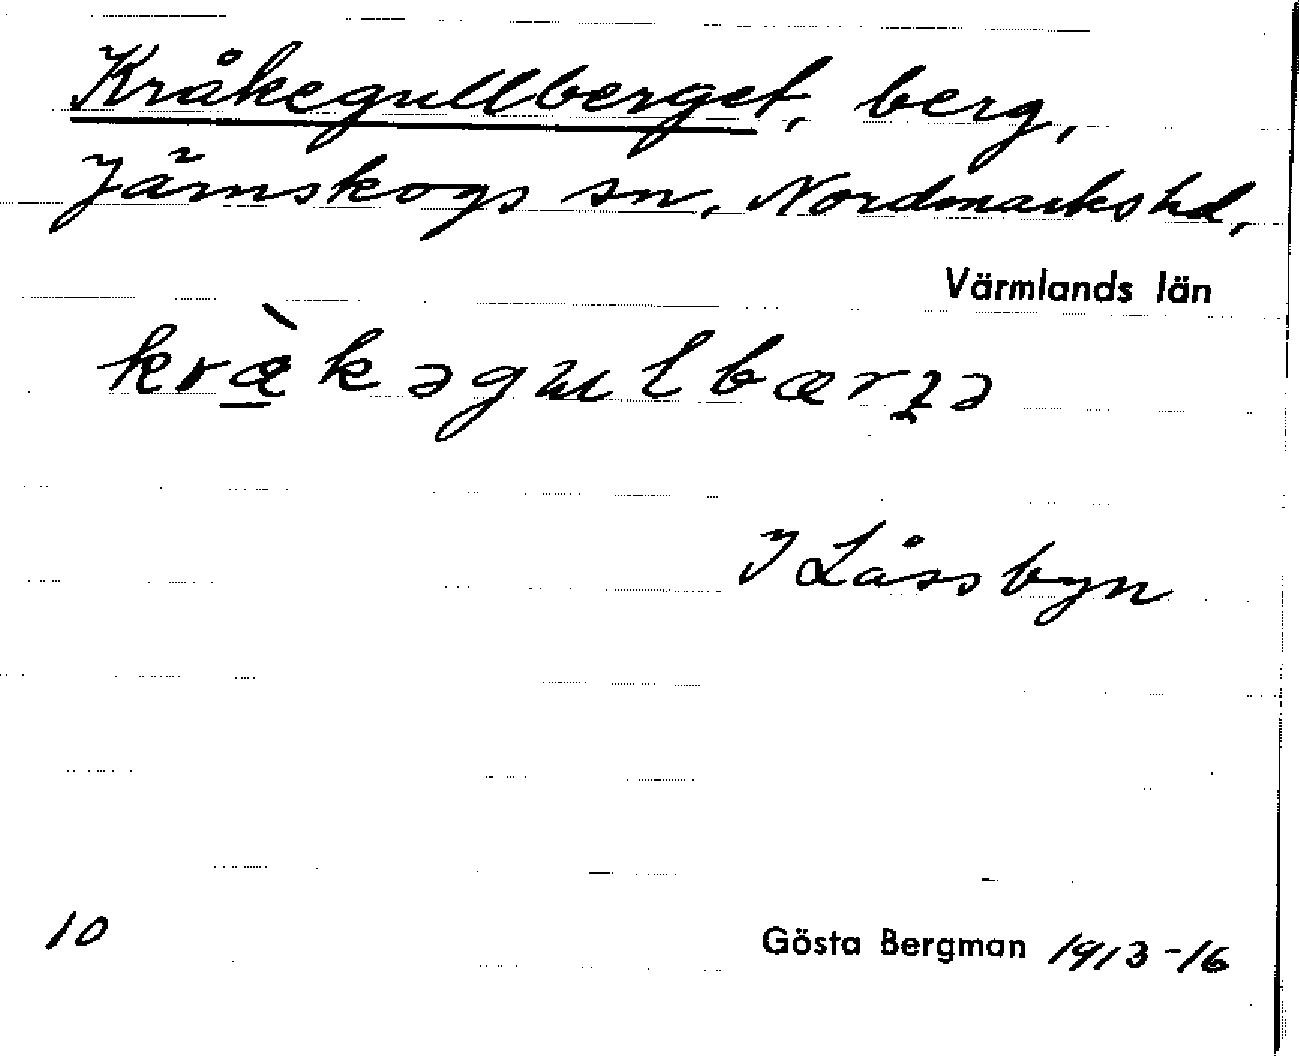 Kråkegullberget, berg,
Järnskogs sn, Nordmarks hd,
Värmlands län
kræ̠̀kəgulbærʓə
I Låssbyn
10
Gösta Bergman 1913-16